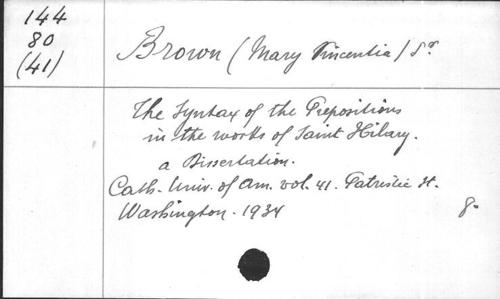 144
80
(41)
Brown (Mary Vincentia) Sr.
The Syntax of the Prepositions
in the works of Saint Hilary.
a Dissertation.
Cath. Univ. of Am. vol. 41. Patristic St.
Washington. 1934
8.